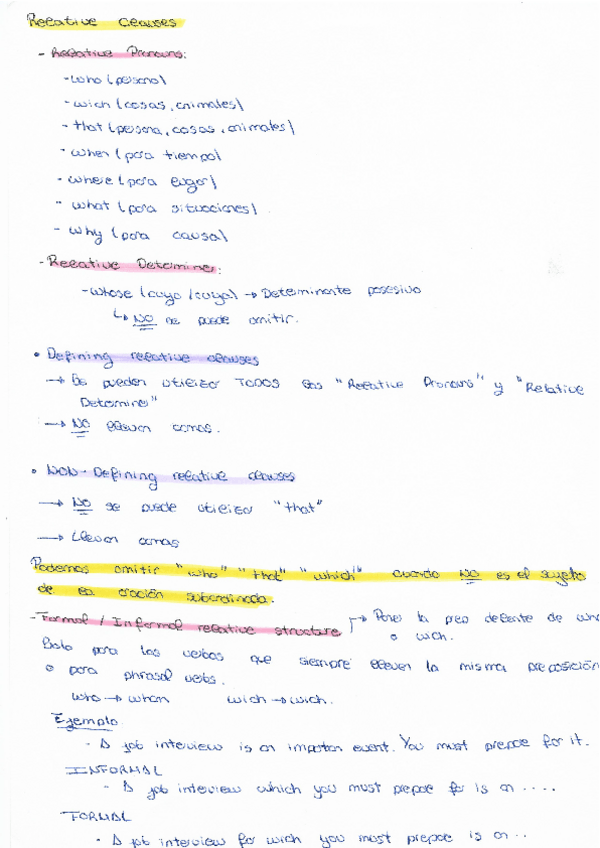 Relative Clauses
- Relative Pronouns:
-who (persona)
- wich (cosas, animales)
- that (persona, cosas, animales)
- when (para tiempo)
- where (para lugar)
- what (para situaciones)
- why (para causa)
- Relative Determiner:
-whose (cuyo/cuya) → Determinante posesivo
↳ NO se puede omitir.
• Defining relative clauses
→ Se pueden utilizar TODOS los "Relative Pronouns" y "Relative
Determiner"
→ NO llevan comas.
• NON-Defining relative clauses
→ NO se puede utilizar "that"
→ Llevan comas
Podemos omitir "who" "that" "which" cuando NO es el sujeto
de la oración subordinada.
- Formal / Informal relative structure → Poner la prep delante de who
o wich.
Solo para los verbos que siempre llevan la misma preposición
o para phrasal verbs.
who → whom wich → wich.
Ejemplo
- A job interview is an important event. You must prepare for it.
INFORMAL
- A job interview which you must prepare for is an ....
FORMAL
- A job interview for wich you must prepare is an ..